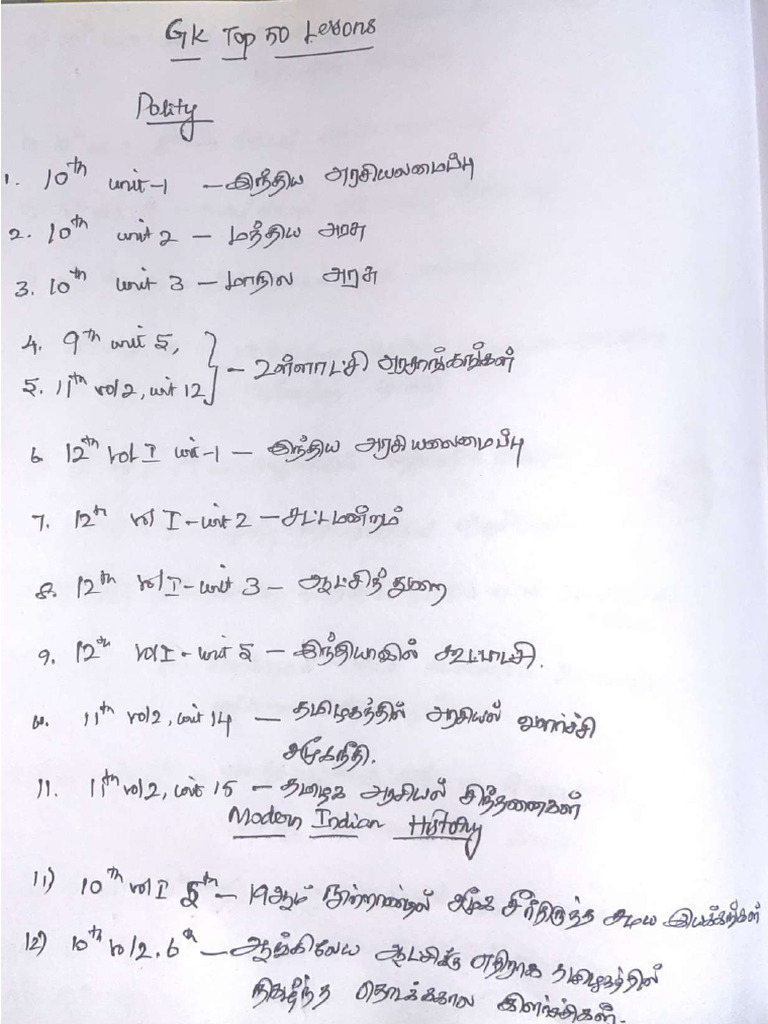 GK Top 50 Lessons
Polity
1. 10th unit-1 – இந்திய அரசியலமைப்பு
2. 10th unit 2 – மத்திய அரசு
3. 10th unit 3 – மாநில அரசு
4. 9th unit 5,
5. 11th vol2, unit 12 } – உள்ளாட்சி அரசாங்கங்கள்
6. 12th vol I unit-1 – இந்திய அரசியலமைப்பு
7. 12th vol I – unit 2 – சட்டமன்றம்
8. 12th vol I – unit 3 – ஆட்சித்துறை
9. 12th vol I – unit 5 – இந்தியாவில் கூட்டாட்சி.
10. 11th vol2, unit 14 – தமிழகத்தில் அரசியல் வளர்ச்சி
சமூகநீதி.
11. 11th vol2, unit 15 – தமிழக அரசியல் சிந்தனைகள்
Modern Indian History
11) 10th vol I 5th – 19ஆம் நூற்றாண்டில் சமூக சீர்திருத்த சமய இயக்கங்கள்
12) 10th vol2. 6th – ஆங்கிலேய ஆட்சிக்கு எதிராக தமிழகத்தில்
நிகழ்ந்த தொடக்ககால கிளர்ச்சிகள்.